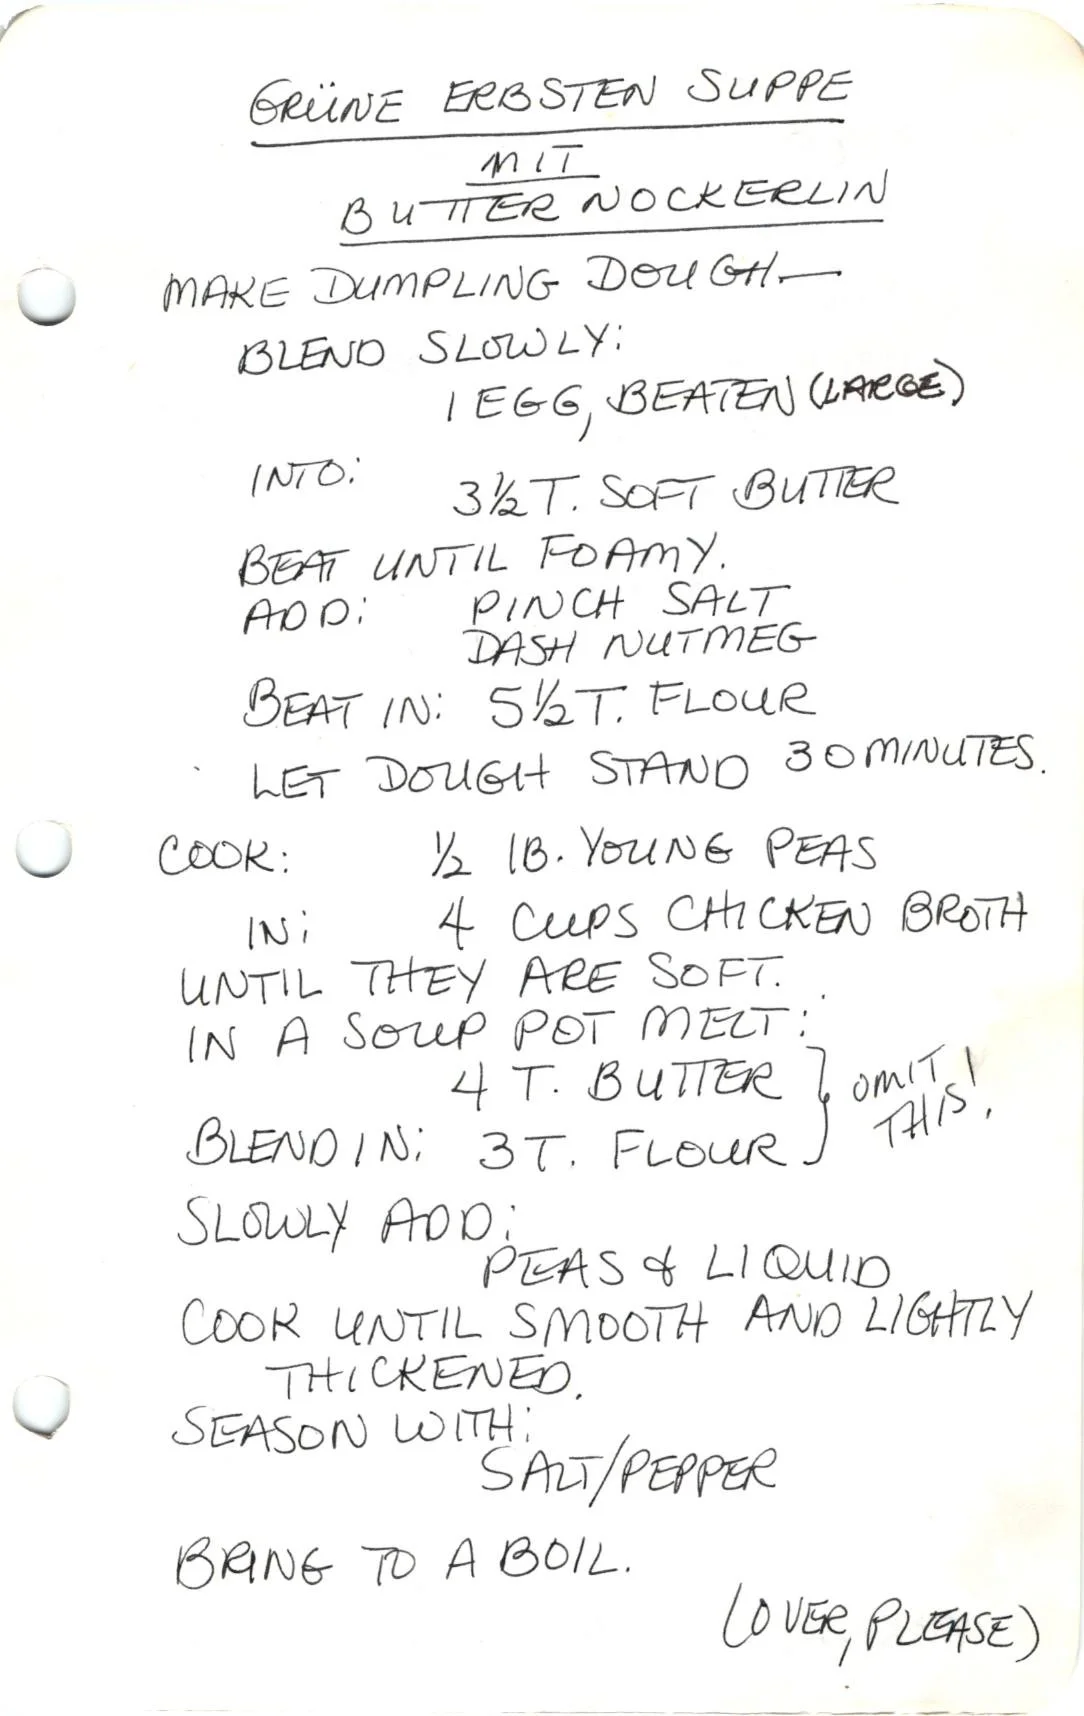 GRÜNE ERBSTEN SUPPE
MIT
BUTTER NOCKERLIN
MAKE DUMPLING DOUGH—
BLEND SLOWLY:
1 EGG, BEATEN (LARGE)
INTO: 3½ T. SOFT BUTTER
BEAT UNTIL FOAMY.
ADD: PINCH SALT
DASH NUTMEG
BEAT IN: 5½ T. FLOUR
LET DOUGH STAND 30 MINUTES.
COOK: ½ LB. YOUNG PEAS
IN: 4 CUPS CHICKEN BROTH
UNTIL THEY ARE SOFT.
IN A SOUP POT MELT:
4 T. BUTTER
BLEND IN: 3 T. FLOUR
OMIT
THIS!
SLOWLY ADD:
PEAS & LIQUID
COOK UNTIL SMOOTH AND LIGHTLY
THICKENED.
SEASON WITH:
SALT/PEPPER
BRING TO A BOIL.
(OVER, PLEASE)